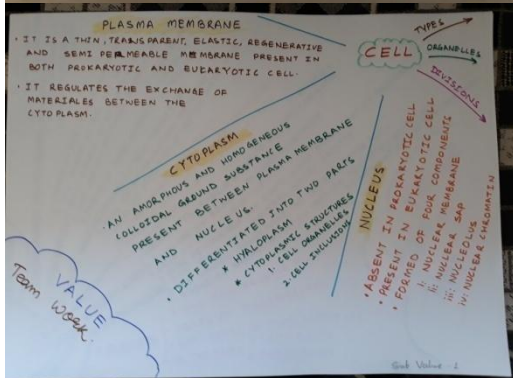 PLASMA MEMBRANE
• IT IS A THIN, TRANSPARENT, ELASTIC, REGENERATIVE
AND SEMI PERMEABLE MEMBRANE PRESENT IN
BOTH PROKARYOTIC AND EUKARYOTIC CELL.
• IT REGULATES THE EXCHANGE OF
MATERIALES BETWEEN THE
CYTOPLASM.
CELL
TYPES
ORGANELLES
DIVISIONS
CYTOPLASM
• AN AMORPHOUS AND HOMOGENEOUS
COLLOIDAL GROUND SUBSTANCE
PRESENT BETWEEN PLASMA MEMBRANE
AND NUCLEUS.
• DIFFERENTIATED INTO TWO PARTS
* HYALOPLASM
* CYTOPLASMIC STRUCTURES
1. CELL ORGANELLES
2. CELL INCLUSIONS
NUCLEUS
• ABSENT IN PROKARYOTIC CELL
• PRESENT IN EUKARYOTIC CELL
• FORMED OF FOUR COMPONENTS
i: NUCLEAR MEMBRANE
ii: NUCLEAR SAP
iii: NUCLEOLUS
iv: NUCLEAR CHROMATIN
VALUE
Team Work.